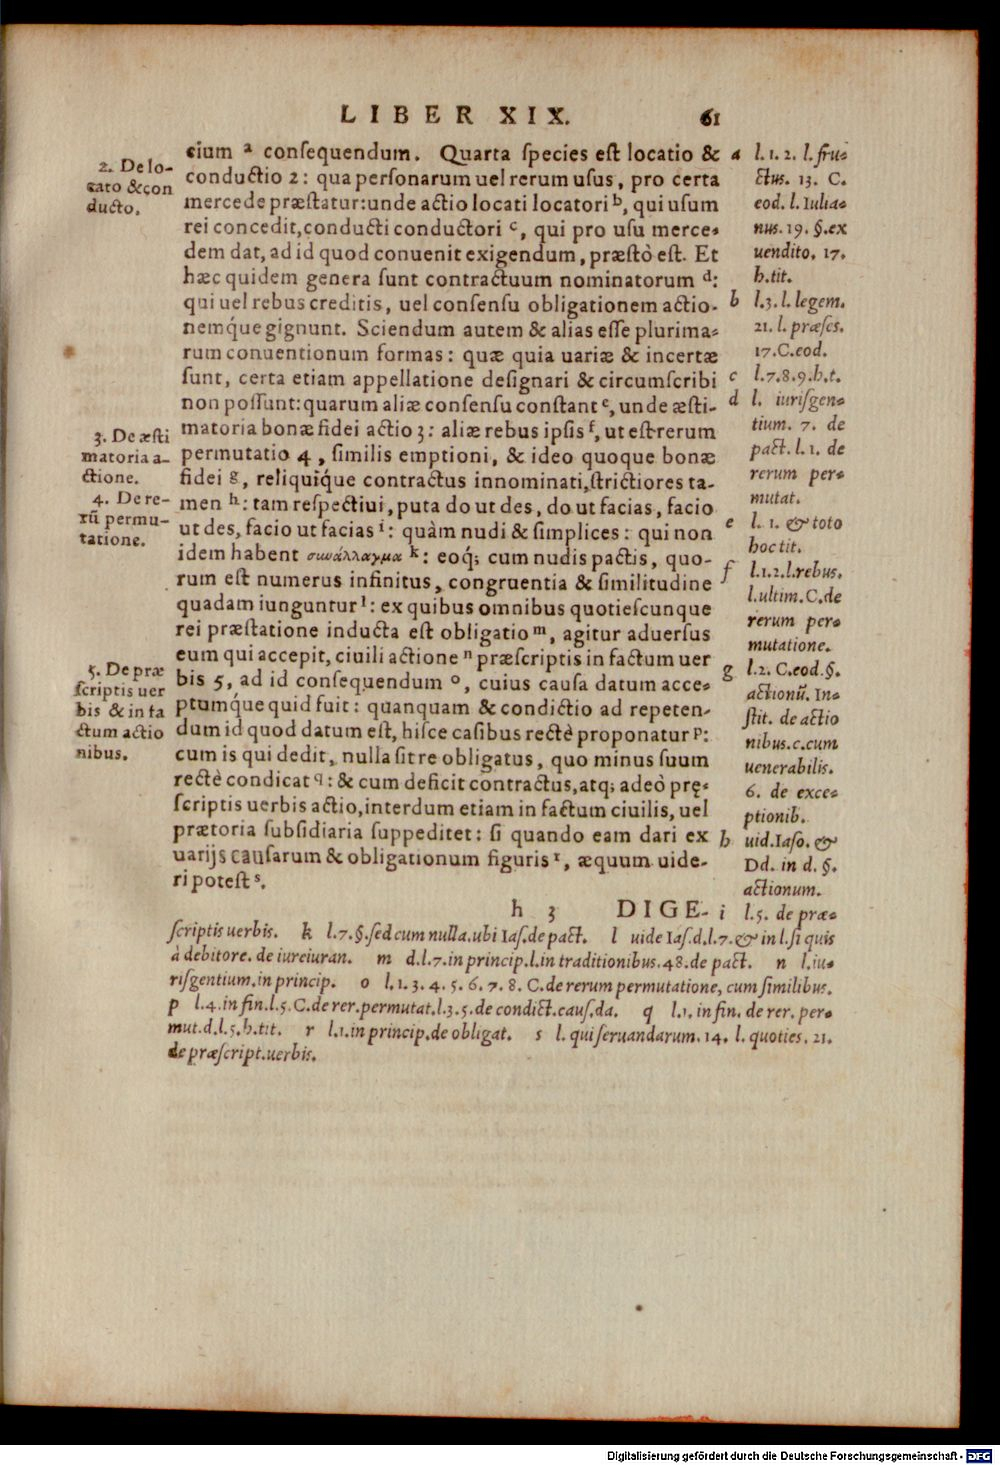 LIBER XIX. 61
cium a consequendum. Quarta species est locatio &
conductio 2: qua personarum uel rerum usus, pro certa
mercede præstatur: unde actio locati locatori b, qui usum
rei concedit, conducti conductori c, qui pro usu merce-
dem dat, ad id quod conuenit exigendum, præstò est. Et
hæc quidem genera sunt contractuum nominatorum d:
qui uel rebus creditis, uel consensu obligationem actio-
nemq́ue gignunt. Sciendum autem & alias esse plurima-
rum conuentionum formas: quæ quia uariæ & incertæ
sunt, certa etiam appellatione designari & circumscribi
non possunt: quarum aliæ consensu constant e, unde æsti-
matoria bonæ fidei actio 3: aliæ rebus ipsis f, ut est rerum
permutatio 4, similis emptioni, & ideo quoque bonæ
fidei g, reliquiq́ue contractus innominati, strictiores ta-
men h: tam respectiui, puta do ut des, do ut facias, facio
ut des, facio ut facias i: quàm nudi & simplices: qui non
idem habent συνάλλαγμα k: eoq́; cum nudis pactis, quo-
rum est numerus infinitus, congruentia & similitudine
quadam iunguntur l: ex quibus omnibus quotiescunque
rei præstatione inducta est obligatio m, agitur aduersus
eum qui accepit, ciuili actione n præscriptis in factum uer
bis 5, ad id consequendum o, cuius causa datum acce-
ptumq́ue quid fuit: quanquam & condictio ad repeten-
dum id quod datum est, hisce casibus rectè proponatur p:
cum is qui dedit, nulla sit re obligatus, quo minus suum
rectè condicat q: & cum deficit contractus, atq; adeò prę-
scriptis uerbis actio, interdum etiam in factum ciuilis, uel
prætoria subsidiaria suppeditet: si quando eam dari ex
uarijs causarum & obligationum figuris r, æquum uide-
ri potest s.
h 3 DIGE-
2. De lo-
cato & con
ducto.
3. De æsti
matoria a-
ctione.
4. De re-
rū permu-
tatione.
5. De præ
scriptis uer
bis & in fa
ctum actio
nibus.
a l. 1. 2. l. fru-
ctus. 13. C.
eod. l. Iulia-
nus. 19. §. ex
uendito. 17.
h. tit.
b l. 3. l. legem.
21. l. præses.
17. C. eod.
c l. 7. 8. 9. h. t.
d l. iurisgen-
tium. 7. de
pact. l. 1. de
rerum per-
mutat.
e l. 1. & toto
hoc tit.
f l. 1. 2. l. rebus.
l. ultim. C. de
rerum per-
mutatione.
g l. 2. C. eod. §.
actionū. In-
stit. de actio
nibus. c. cum
uenerabilis.
6. de exce-
ptionib.
h uid. Iaso. &
Dd. in d. §.
actionum.
i l. 5. de præ-
scriptis uerbis. k l. 7. §. sed cum nulla. ubi Ias. de pact. l uide Ias. d. l. 7. & in l. si quis
à debitore. de iureiuran. m d. l. 7. in princip. l. in traditionibus. 48. de pact. n l. iu-
risgentium. in princip. o l. 1. 3. 4. 5. 6. 7. 8. C. de rerum permutatione, cum similibus.
p l. 4. in fin. l. 5. C. de rer. permutat. l. 3. 5. de condict. caus. da. q l. 1. in fin. de rer. per-
mut. d. l. 5. h. tit. r l. 1. in princip. de obligat. s l. qui seruandarum. 14. l. quoties. 21.
de præscript. uerbis.
Digitalisierung gefördert durch die Deutsche Forschungsgemeinschaft - DFG